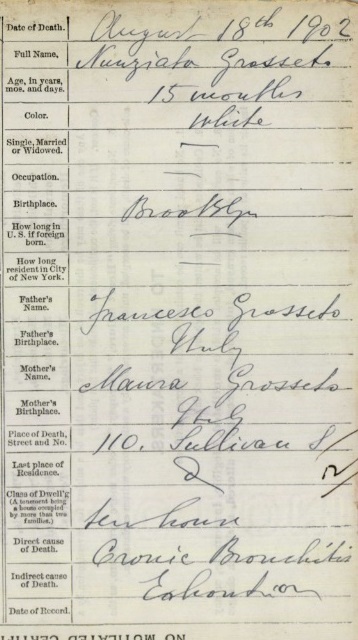 Date of Death. August 18th 1902
Full Name. Nunziata Grosseto
Age, in years, mos. and days. 15 months
Color. White
Single, Married or Widowed. —
Occupation. —
Birthplace. Brooklyn
How long in U. S. if foreign born. —
How long resident in City of New York. —
Father's Name. Francesco Grosseto
Father's Birthplace. Italy
Mother's Name. Maura Grosseto
Mother's Birthplace. Italy
Place of Death, Street and No. 110. Sullivan S/
Last place of Residence.
Class of Dwell'g (A tenement being a house occupied by more than two families.) ten house
Direct cause of Death. Cronic Bronchitis
Indirect cause of Death. Exhoustion
Date of Record.
NO MUTILATED CERTIFI